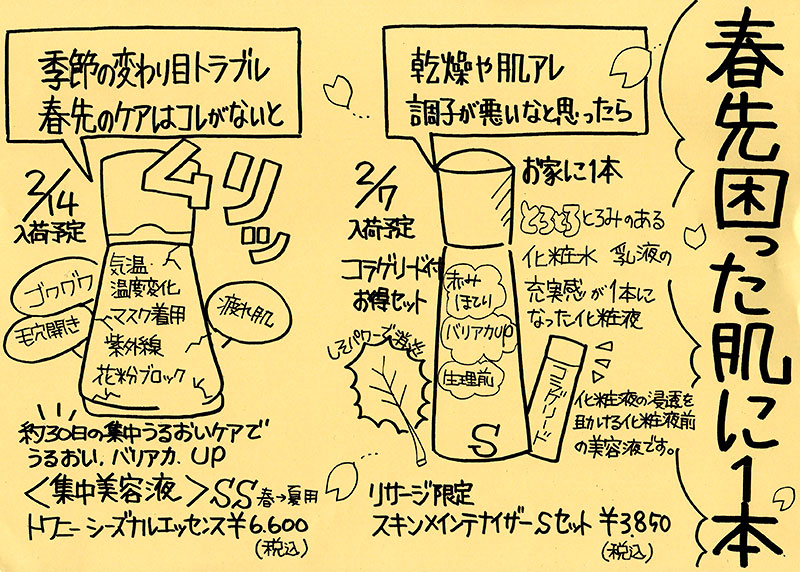 春先困った肌に1本
乾燥や肌アレ
調子が悪いなと思ったら
お家に1本
2/7
入荷予定
コラグリード付
お得セット
とろとろとろみのある
化粧水 乳液の
充実感が1本に
なった化粧液
赤み
ほてり
バリアカUP
生理前
しそパワーで増進
S
コラグリード
化粧液の浸透を
助ける化粧液前
の美容液です。
リサージ限定
スキンメインテナイザーSセット ¥3.850
(税込)
季節の変わり目トラブル
春先のケアはコレがないと
ムリッ
2/14
入荷予定
ゴワゴワ
毛穴開き
疲れ肌
気温
温度変化
マスク着用
紫外線
花粉ブロック
約30日の集中うるおいケアで
うるおい.バリアカ.UP
<集中美容液>SS 春→夏用
トワニー シーズナルエッセンス¥6.600
(税込)